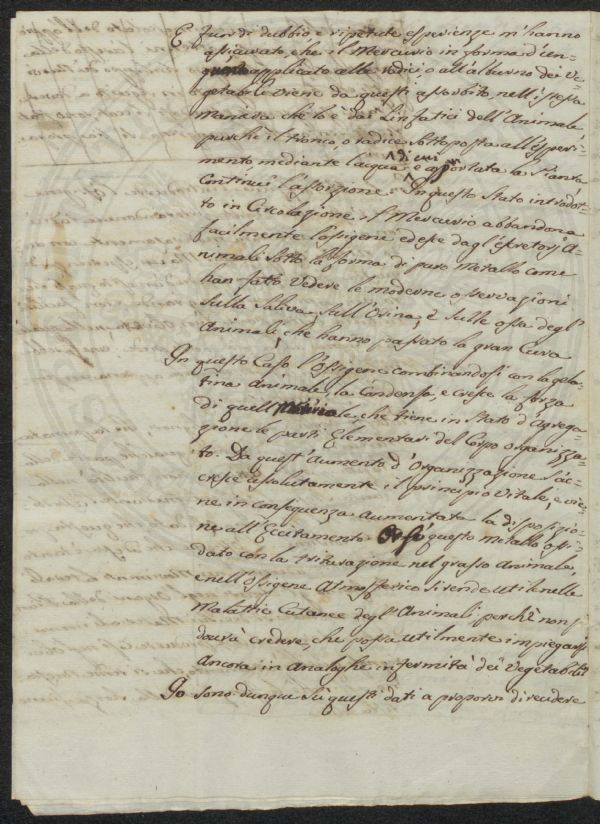 E fuor di dubbio e ripetute esperienze m'hanno
assicurato, che il Mercurio in forma d'un-
applicato alle radici, o all'alburno dei Ve-
getabili viene da questi assorbito nell'istessa
maniera che lo è dai Linfatici dell'Animale,
purché il tronco, o radice sottoposta all'esperi-
mento mediante l'acqua di cui è asportata la Pianta
continui l'assorzione. In questo Stato introdot-
to in Circolazione il Mercurio abbandona
facilmente l'ossigene ed esce dagl'escretori A-
nimali sotto la forma di puro Metallo come
han fatto vedere le moderne osservazioni
sulla Saliva, sull'Orina, e sulle ossa degl'
Animali, che hanno passato la gran Cura
In questo Caso l'Ossigene combinandosi con la gela-
tina Animale, la Condensa, e cresce la forza
di quell che tiene in stato d'Agrega-
zione le parti Elementari del Corpo organizza-
to. Da quest'Aumento d'Organizzazione s'ac-
cresce assolutamente il principio Vitale, e vie-
ne in conseguenza aumentata la disposizio-
ne all'Eccitamento. Or se questo Metallo ossi-
dato con la triturazione nel grasso Animale,
e nell'Ossigene Atmosferico si rende utile nelle
Malattie Cutanee degl'Animali perchè non si
dovrà credere, che possa utilmente impiegarsi
Ancora in Analoghe infermità dei Vegetabili?
Io sono dunque su questi dati a proporvi di rendere